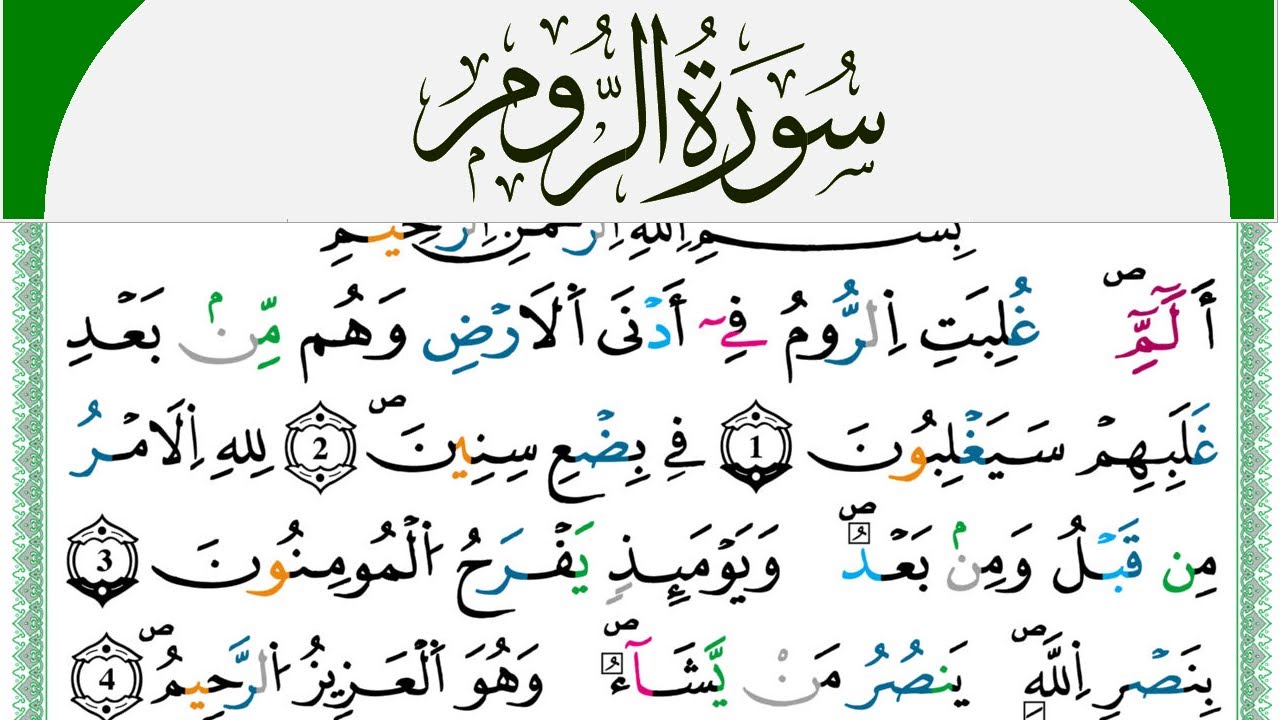 سُورَةُ الرُّومِ
بِسْمِ اِللَّهِ اِلرَّحْمَٰنِ اِلرَّحِيمِ
أَلَٓمِّٓۖ غُلِبَتِ اِلرُّومُ فِےٓ أَدْنَى اَلَارْضِ وَهُم مِّنۢ بَعْدِ
غَلَبِهِمْ سَيَغْلِبُونَ 1 فِے بِضْعِ سِنِينَۖ 2 لِلهِ اِلَامْرُ
مِن قَبْلُ وَمِنۢ بَعْدُۖ وَيَوْمَئِذٍ يَفْرَحُ اُلْمُومِنُونَ 3
بِنَصْرِ اِللَّهِۖ يَنصُرُ مَنْ يَّشَآءُۖ وَهُوَ اَلْعَزِيزُ اُلرَّحِيمُۖ 4